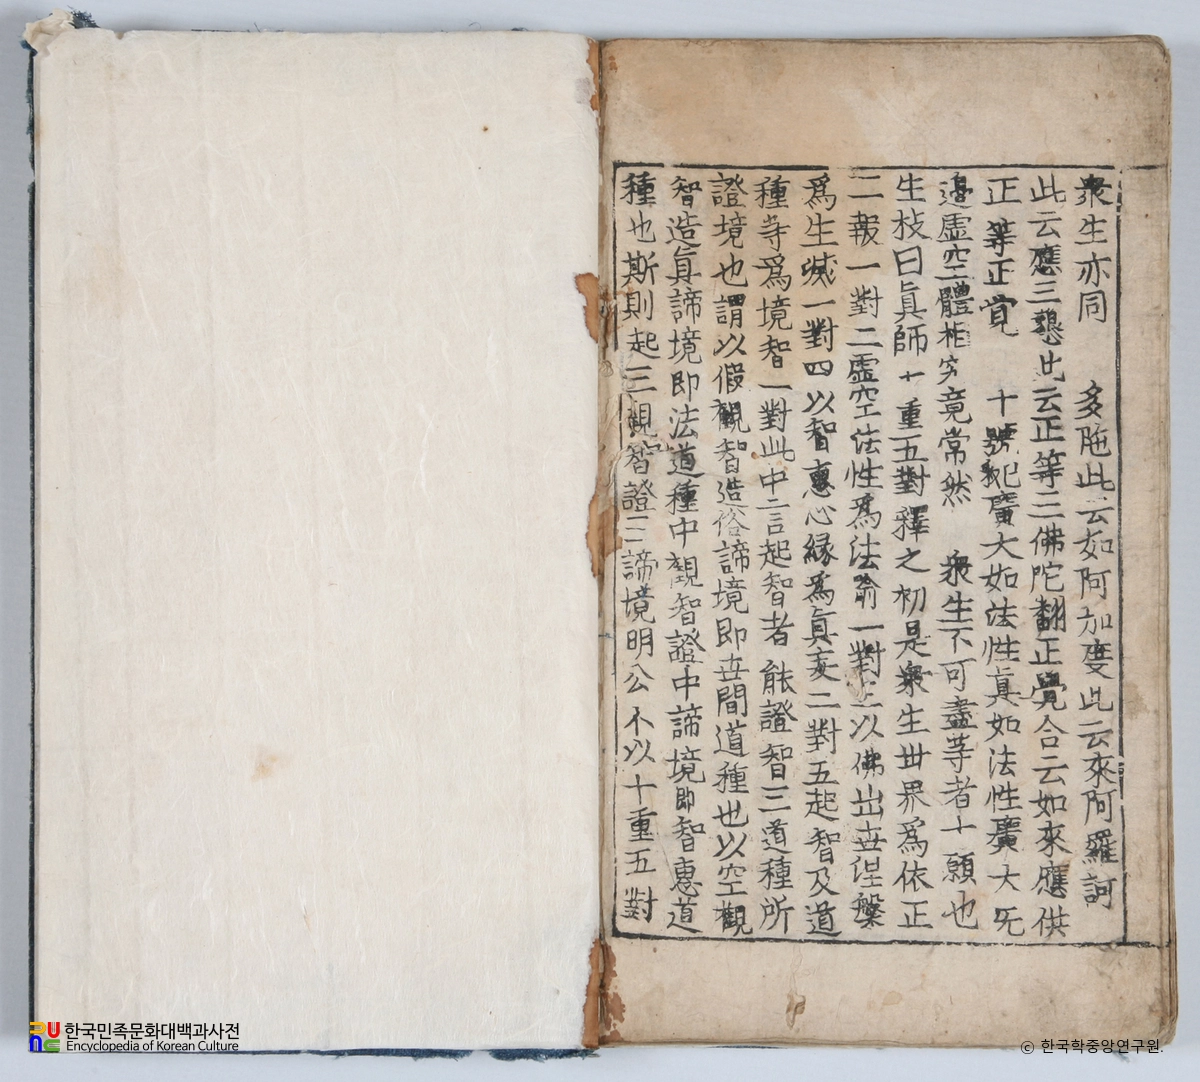 衆生亦同 多陁此云如阿加度此云來阿羅訶
此云應三藐此云正等三佛陀翻正覺合云如來應供
正等正覺 十號紀廣大如法性眞如法性廣大旡
邊虛空體相究竟常然 衆生不可盡等者十願也
生枝曰眞師十重五對釋之初是衆生丗界爲依正
二報一對二虛空法性爲法喻一對三以佛出世涅槃
爲生滅一對四以智惠心緣爲眞妄二對五起智及道
種等爲境智一對此中言起智者能證智三道種所
證境也謂以假觀智造俗諦境即世間道種也以空觀
智造眞諦境即法道種中觀智證中諦境即智惠道
種也斯則起三觀智證三諦境明公不以十重五對
한국민족문화대백과사전
Encyclopedia of Korean Culture
ⓒ 한국학중앙연구원.